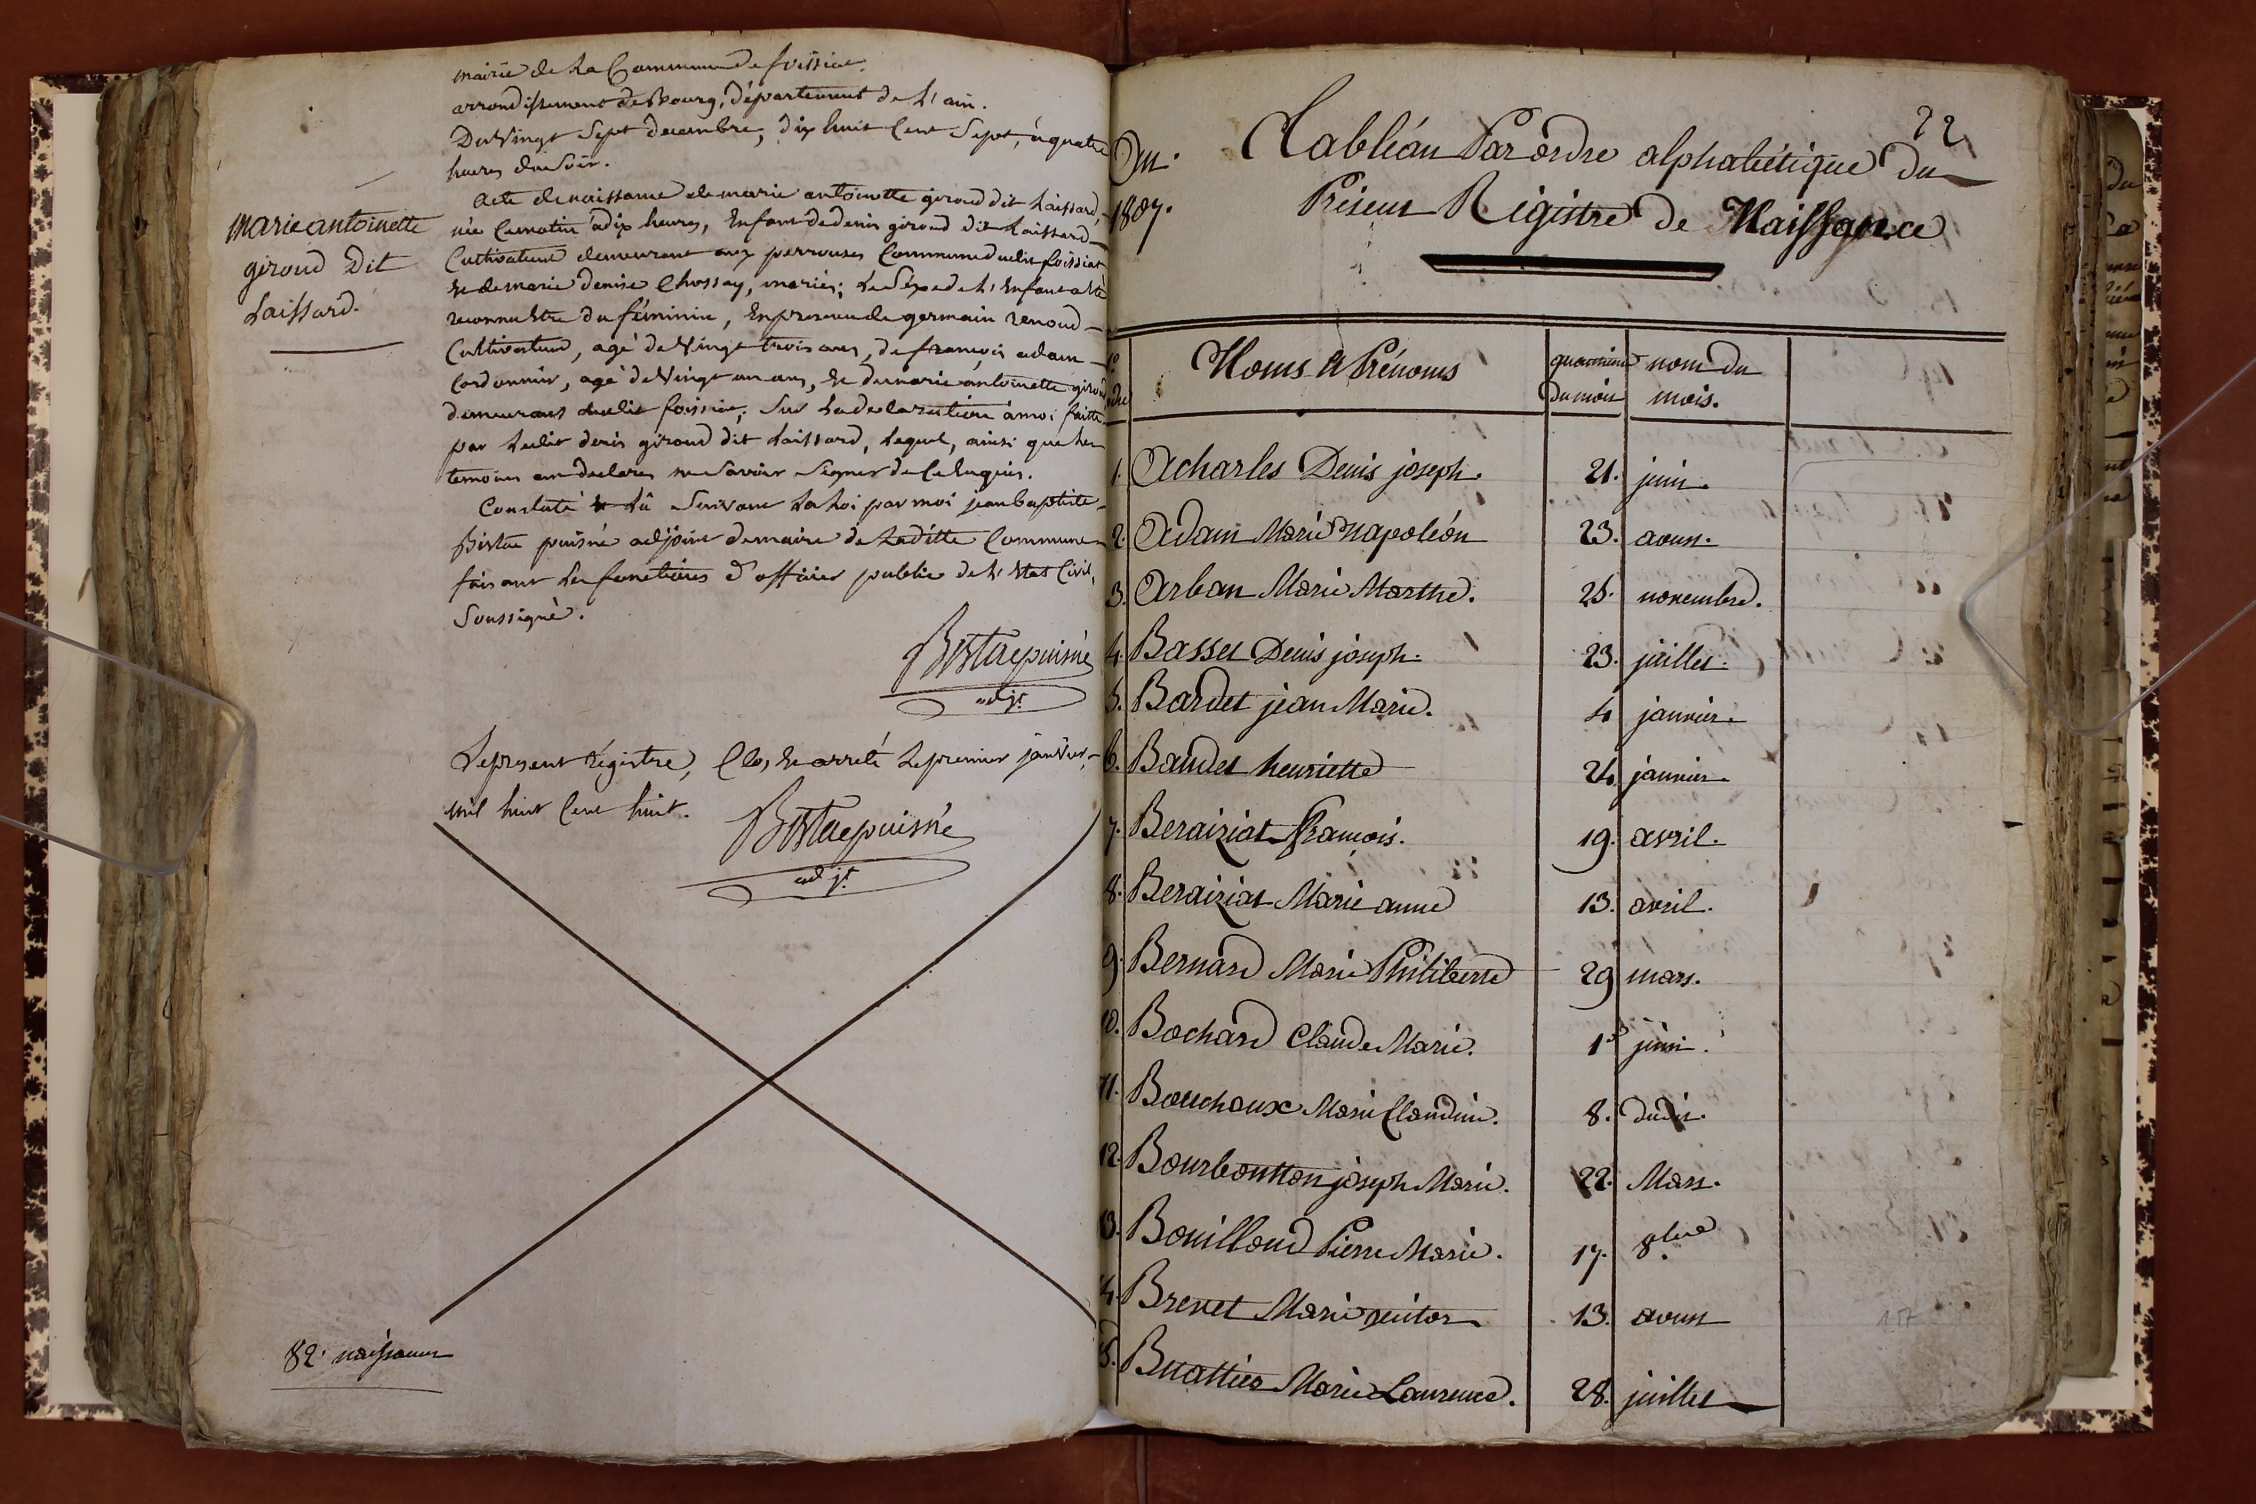 mairie de La Commune de foissiat,
arrondissement de Bourg, département de L'ain.
Du Vingt Sept decembre, dix huit Cent Sept, à quatre
heures du Soir.
Acte de naissance de marie antoinette giroud dit Laissard,
née Cematin à dix heures, Enfant de denis giroud dit Laissard
Cultivateur demeurant aux perrouses Commune dudit foissiat
Et de marie denise Chossay, mariés; Le Sexe de L'Enfant a Eté
reconnu Etre du féminin, En presence de germain renoud
Cultivateur, agé de Vingt trois ans, de françois adam
Cordonnier, agé de Vingt un ans, Et de marie antoinette giroud
demeurants audit foissiat; Sur La declaration à moi faitte
par Ledit denis giroud dit Laissard, Lequel, ainsi que Les
temoins ont declarés ne Savoir Signer de Ce Enquis.
Constaté Et Lû Suivant La Loi par moi jean baptiste
puisné adjoint de maire de Laditte Commune
faisant Les fonctions d'officier public de L'Etat Civil,
Soussigné.
puisné
adjt
marie antoinette
giroud Dit
Laissard.
Le present Registre, Clos, Et arreté Le premier janvier,
mil huit Cent huit.
puisné
adjt
82 naissances
22
An
1807.
Tableau Par ordre alphabétique Du
Présent Registre de Naissance
No
Noms et Prénoms quantième du mois nom du mois.
1. Acharles Denis joseph. 21. juin.
2. Adam Marie Napoléon 23. aoust.
3. Arban Marie Marthe. 25. novembre.
4. Basset Denis joseph. 23. juillet.
5. Bardet jean Marie. 4 janvier.
6. Baudet henriette 24 janvier.
7. Beraiziat françois. 19. avril.
8. Beraiziat Marie anne 13. avril.
9. Bernard Marie Philiberte 29 mars.
10. Bochard Claude Marie. 1er juin.
11. Bouchoux Marie Claudine. 8. dudit.
12. Bourbonton joseph Marie. 22. Mars.
13. Bouilloud Pierre Marie. 17. 8bre
14. Brevet Marie victor 13. aoust
15. Buattier Marie Laurence. 28. juillet
117